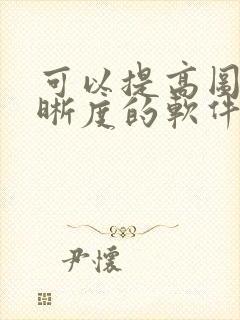 可以提高圖
晰度的軟件
尹懷